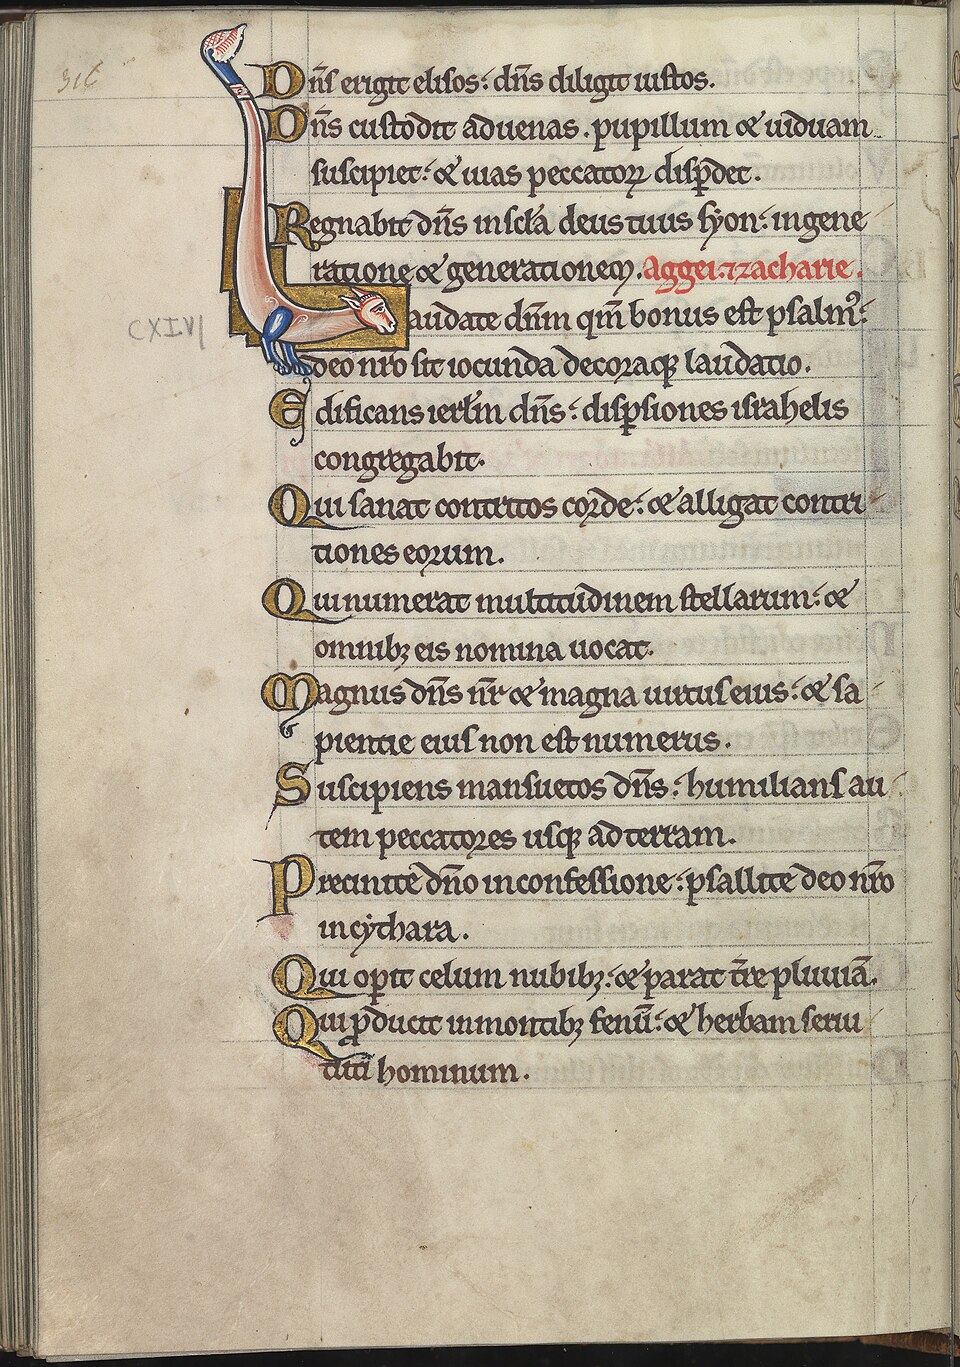 316
Dn̄s erigit elisos: dn̄s diligit iustos.
Dn̄s custodit aduenas. pupillum & uiduam
suscipiet: & uias peccatoꝝ disp̄det.
Regnabit dn̄s in scl̄a deus tuus syon: in gene
ratione & generationem. Aggei ⁊ zacharie.
Laudate dn̄m qm̄ bonus est psalmꝰ:
deo nr̄o sit iocunda decoraqꝫ laudatio.
Edificans ierl̄m dn̄s: disꝑsiones israhelis
congregabit.
Qui sanat contritos corde: & alligat contri
tiones eorum.
Qui numerat multitudinem stellarum: &
omnibꝫ eis nomina uocat.
CXIVI
Magnus dn̄s nr̄ & magna uirtus eius: & sa
pientie eius non est numerus.
Suscipiens mansuetos dn̄s: humilians au
tem peccatores usqꝫ ad terram.
Precinite dn̄o in confessione: psallite deo nr̄o
in cythara.
Qui oꝑit celum nubibꝫ: & parat tr̄e pluuiā.
Qui ꝓducit in montibꝫ fenū: & herbam serui
tuti hominum.